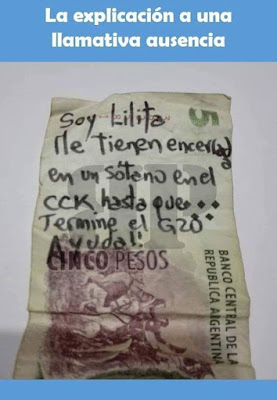 La explicación a una
llamativa ausencia
5
Soy Lilita
Me tienen encerrada
en un sótano en el
CCK hasta que...
Termine el G20
Ayuda!!
CINCO PESOS
BANCO CENTRAL DE LA
REPUBLICA ARGENTINA